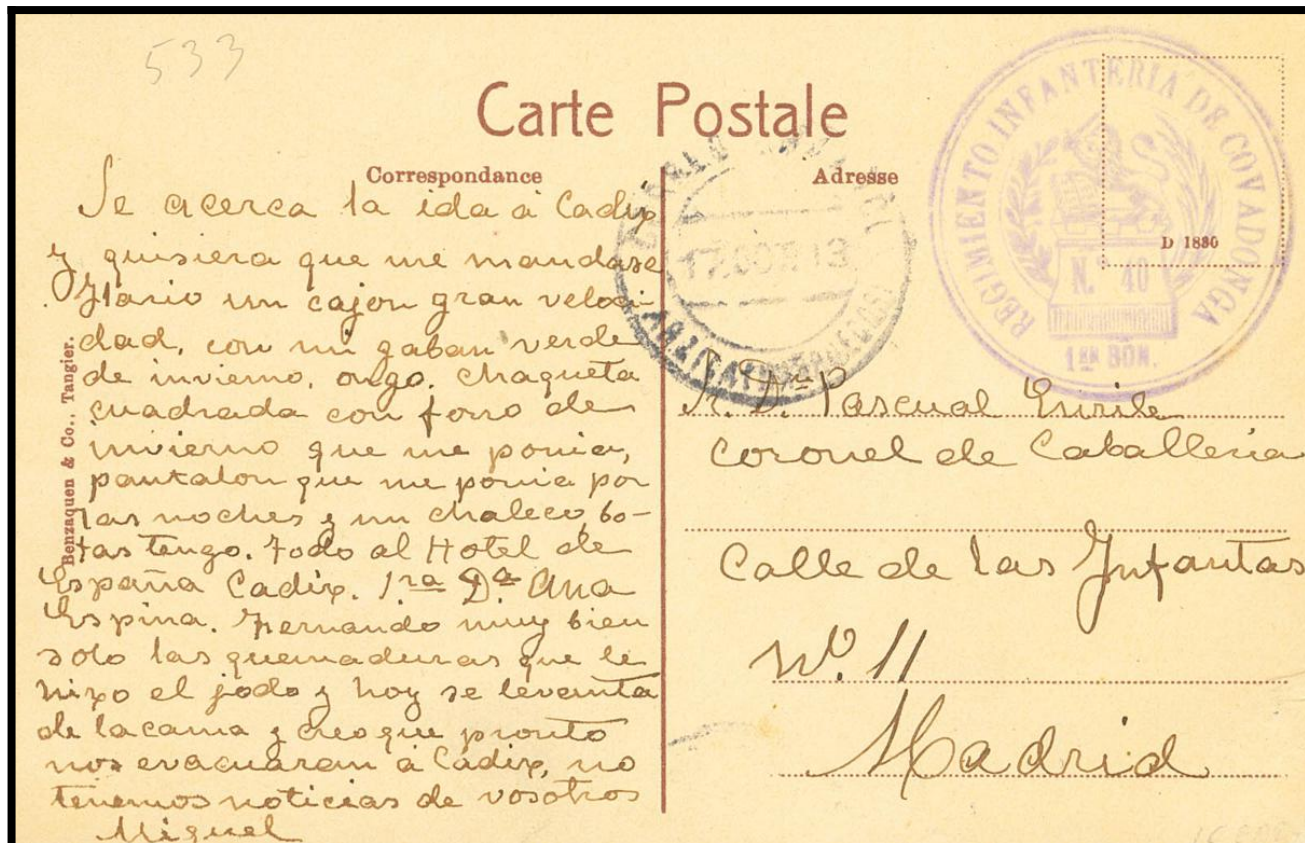 533
Carte Postale
Correspondance
Adresse
Se acerca la ida à Cadix
y quisiera que me mandase
Ilario un cajon gran veloci-
dad, con mi gaban verde
de invierno, chaqueta
cuadrada con forro de
invierno que me ponia,
pantalon que me ponia por
las noches y un chaleco, bo-
tas tengo. Todo al Hotel de
España Cadix. Dª Ana
Espina. Fernando muy bien
solo las quemaduras que le
hizo el jodo y hoy se levanta
de la cama y creo que pronto
nos evacuaran à Cadix, no
tenemos noticias de vosotros
Miguel
Benzaquen & Co., Tangier.
REGIMIENTO INFANTERIA DE COVADONGA
N.º 40
1ER BON.
D 1830
17 OCT 13
Sr. Dn. Pascual Enrile
Coronel de Caballeria
Calle de las Infantas
Nº. 11
Madrid